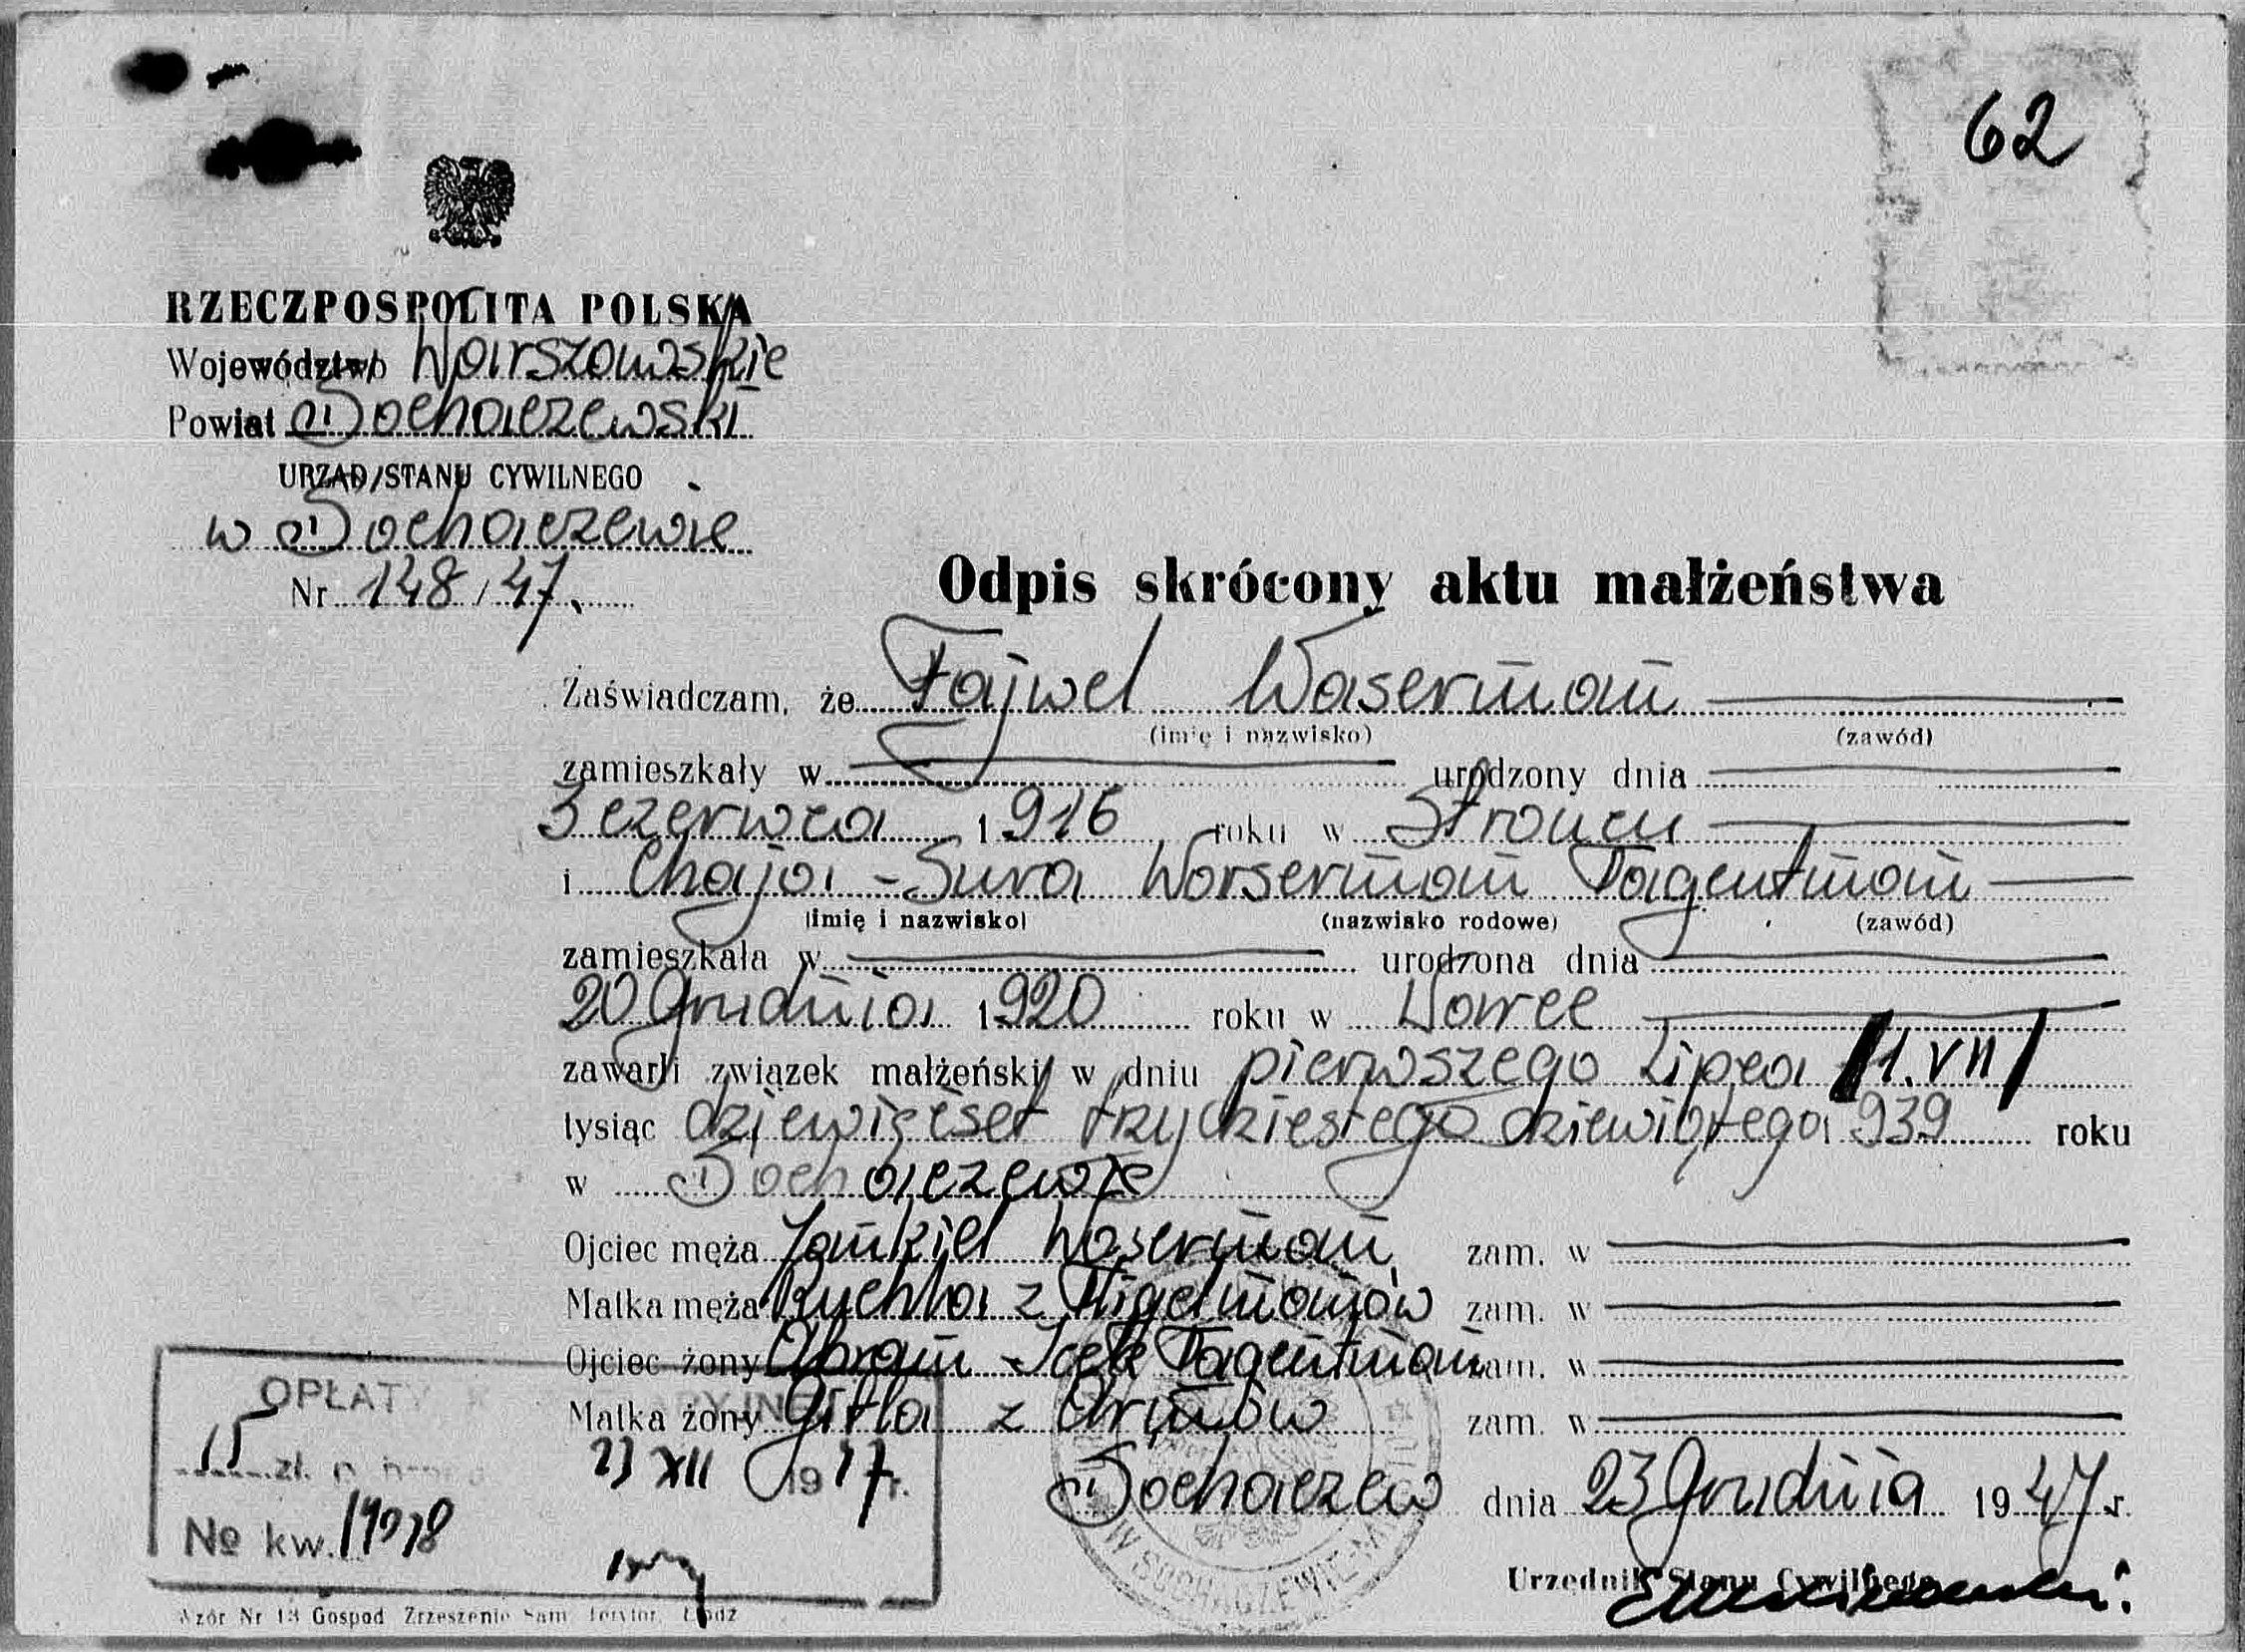 62
RZECZPOSPOLITA POLSKA
Województwo Warszawskie
Powiat Sochaczewski
URZĄD STANU CYWILNEGO
w Sochaczewie
Nr 148/47.
Odpis skrócony aktu małżeństwa
Zaświadczam, że Fajwel Waserman
(imię i nazwisko) (zawód)
zamieszkały w urodzony dnia
3 czerwca 1916 roku w
i Chaja-Sura Waserman Tagentman
(imię i nazwisko) (nazwisko rodowe) (zawód)
zamieszkała w urodzona dnia
20 Grudnia 1920 roku w Warce
zawarli związek małżeński w dniu pierwszego Lipca /1.VII/
tysiąc dziewięćset trzydziestego dziewiątego 939 roku
w Sochaczewie
Ojciec męża Jankiel Waserman zam. w
Matka męża Ruchla z zam. w
Ojciec żony Abram-Icek Tagentman zam. w
Matka żony Gitla z zam. w
Sochaczew dnia 23 Grudnia 1947 r.
Urzędnik Stanu Cywilnego
OPŁATY
15 zł.
23 XII 1947 r.
№ kw.
W SOCHACZEWIE
Wzór Nr 13 Gospod Zrzeszenie Sam Terytor. Łódź